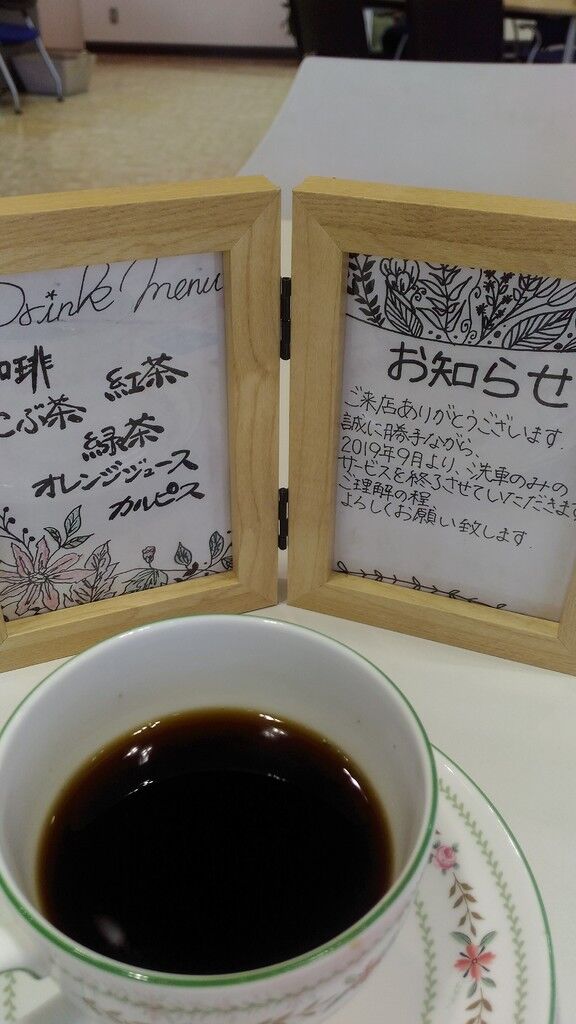 Drink Menu
珈琲 紅茶
こぶ茶
緑茶
オレンジジュース
カルピス
お知らせ
ご来店ありがとうございます.
誠に勝手ながら、
2019年9月より、洗車のみの
サービスを終了させていただきます
ご理解の程
よろしくお願い致します.